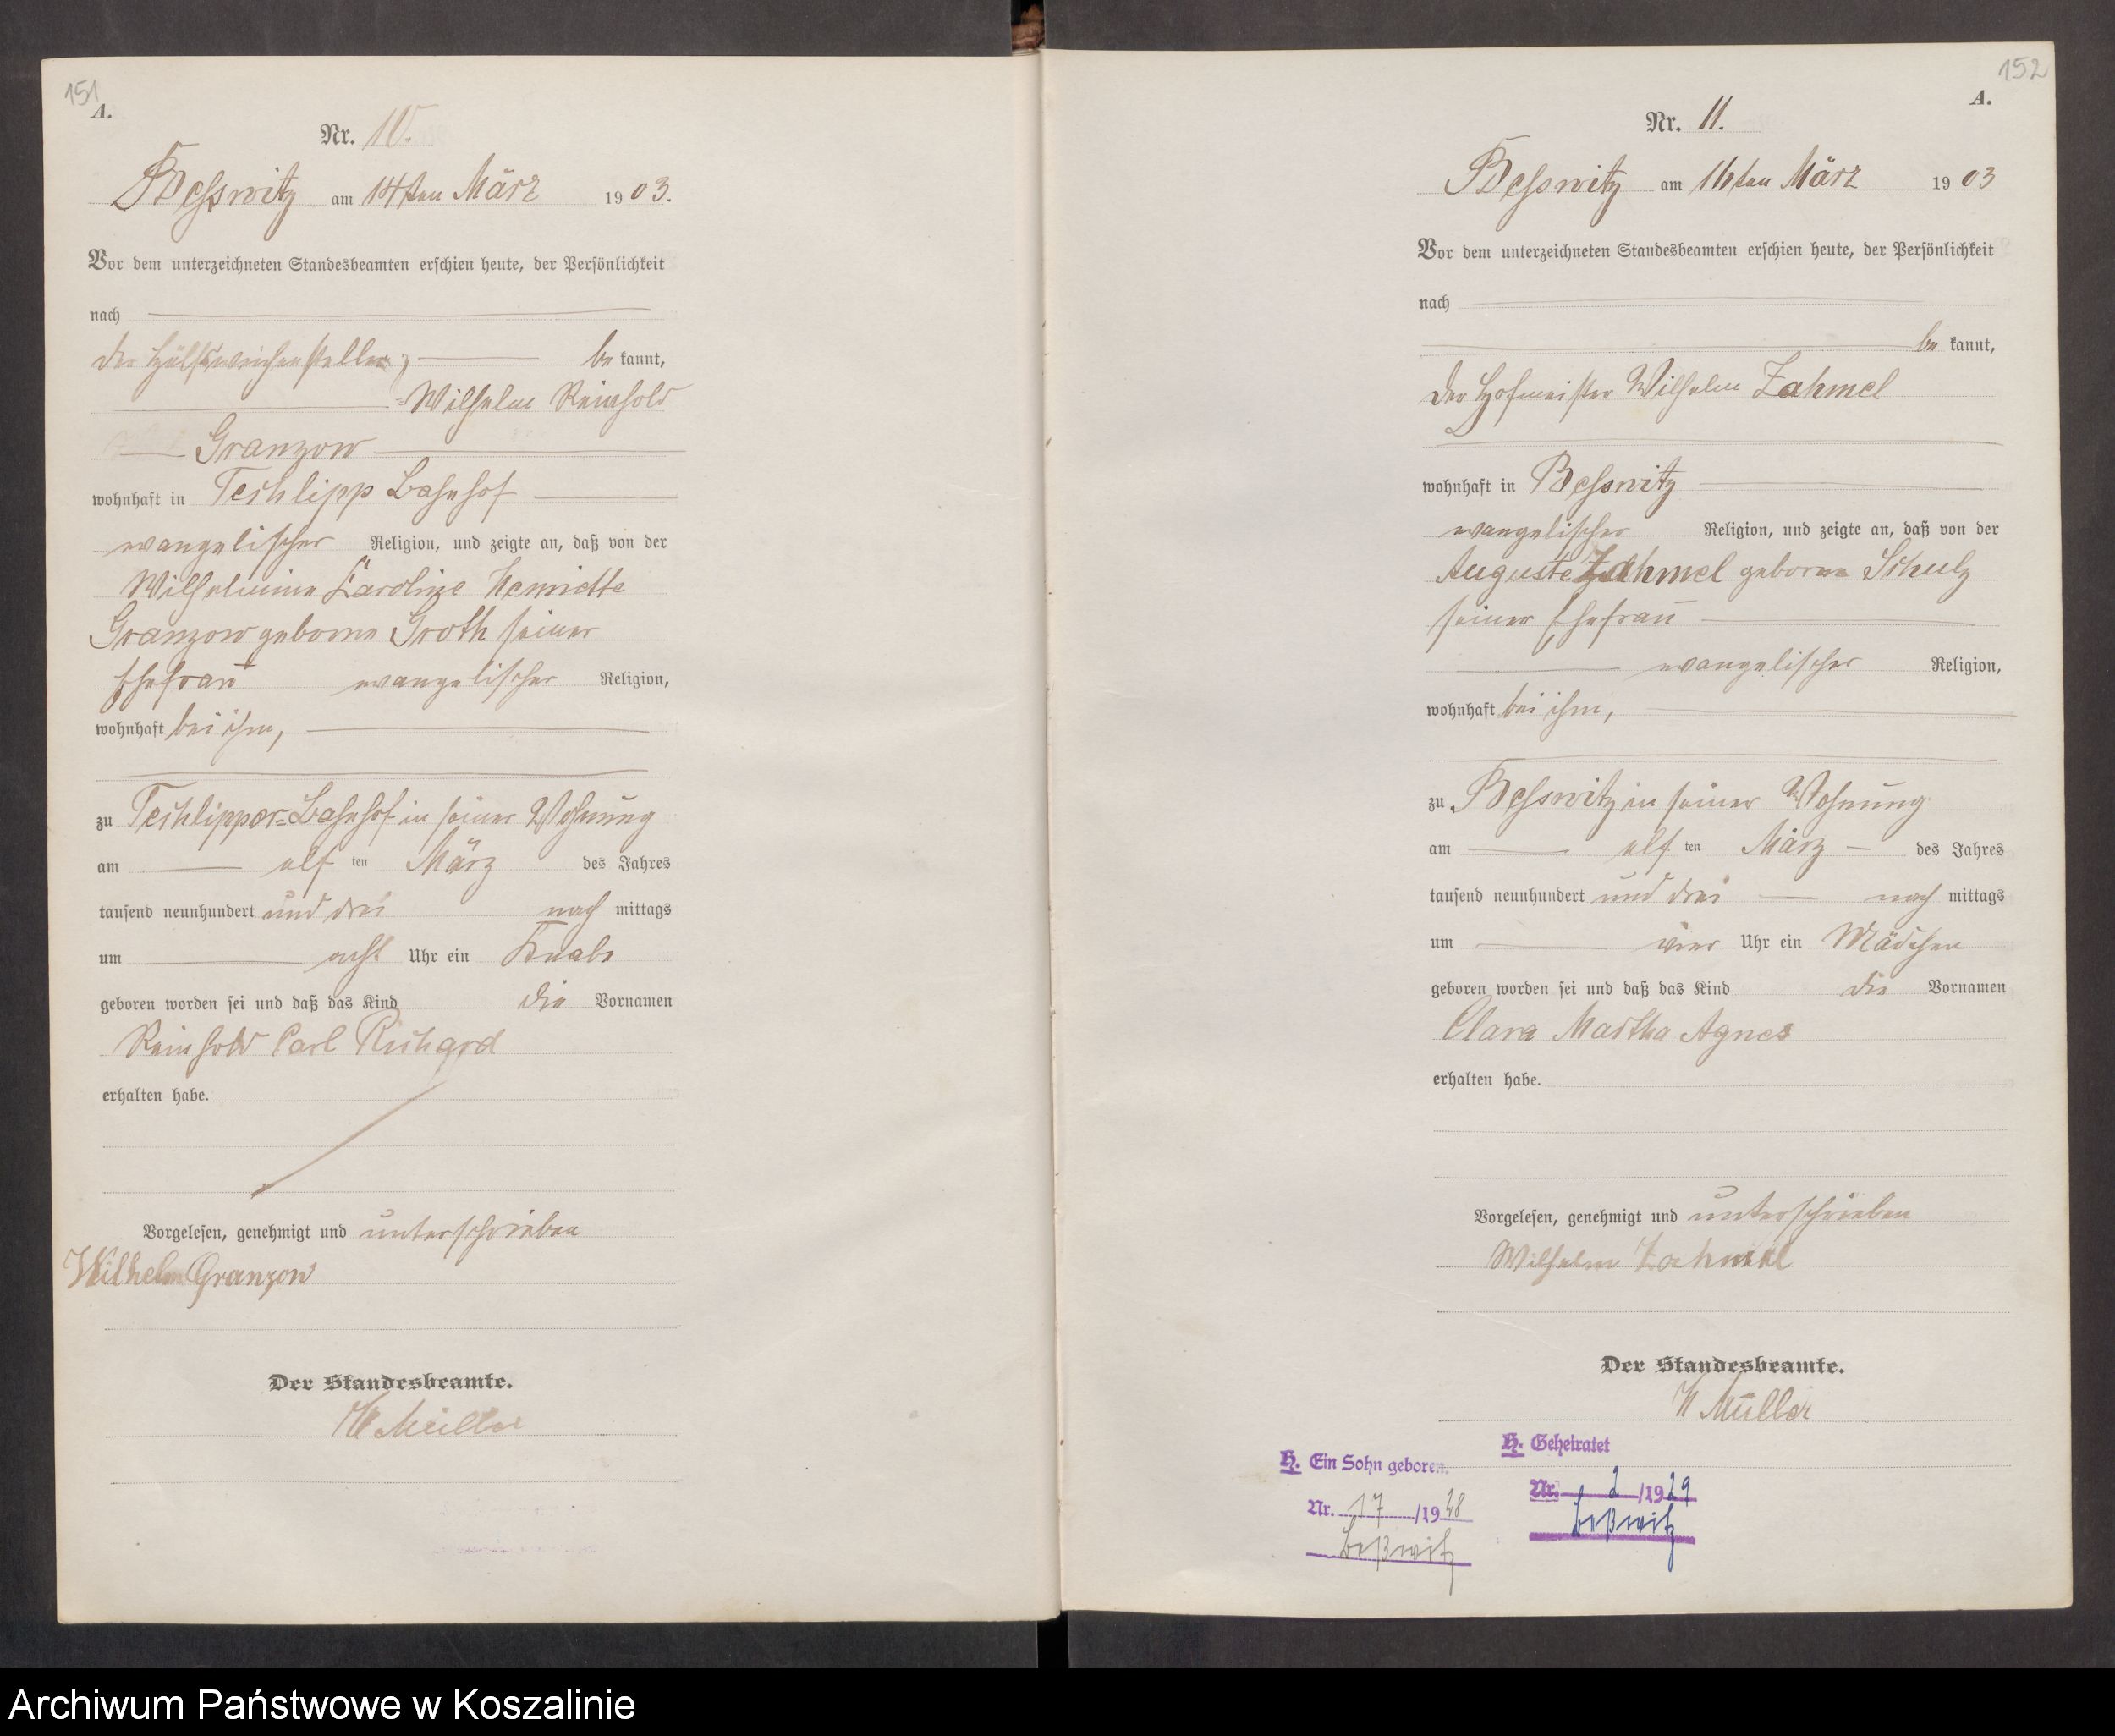 151
A.
Nr. 10.
Beßwitz am 14ten März 1903.
Vor dem unterzeichneten Standesbeamten erschien heute, der Persönlichkeit
nach
der Hülfsweichensteller, be kannt,
Wilhelm Reinhold
Granzow
wohnhaft in Techlipp Bahnhof
evangelischer Religion, und zeigte an, daß von der
Wilhelmine Karoline Henriette
Granzow geborne Groth seiner
Ehefrau evangelischer Religion,
wohnhaft bei ihm,
zu Techlipper-Bahnhof in seiner Wohnung
am elf ten März des Jahres
tausend neunhundert und drei nach mittags
um acht Uhr ein Knabe
geboren worden sei und daß das Kind die Vornamen
Reinhold Carl Richard
erhalten habe.
Vorgelesen, genehmigt und unterschrieben
Wilhelm Granzow
Der Standesbeamte.
W Müller
152
A.
Nr. 11.
Beßwitz am 16ten März 1903
Vor dem unterzeichneten Standesbeamten erschien heute, der Persönlichkeit
nach
be kannt,
der Hofmeister Wilhelm Zahmel
wohnhaft in Beßwitz
evangelischer Religion, und zeigte an, daß von der
Auguste Zahmel geborne Schulz
seiner Ehefrau
evangelischer Religion,
wohnhaft bei ihm,
zu Beßwitz in seiner Wohnung
am elf ten März des Jahres
tausend neunhundert und drei nach mittags
um vier Uhr ein Mädchen
geboren worden sei und daß das Kind die Vornamen
Clara Martha Agnes
erhalten habe.
Vorgelesen, genehmigt und unterschrieben
Wilhelm Zahmel
Der Standesbeamte.
W Müller
H. Ein Sohn geboren.
Nr. 17 /1928
Beßwitz
H. Geheiratet
Nr. 2 /1929
Beßwitz
Archiwum Państwowe w Koszalinie